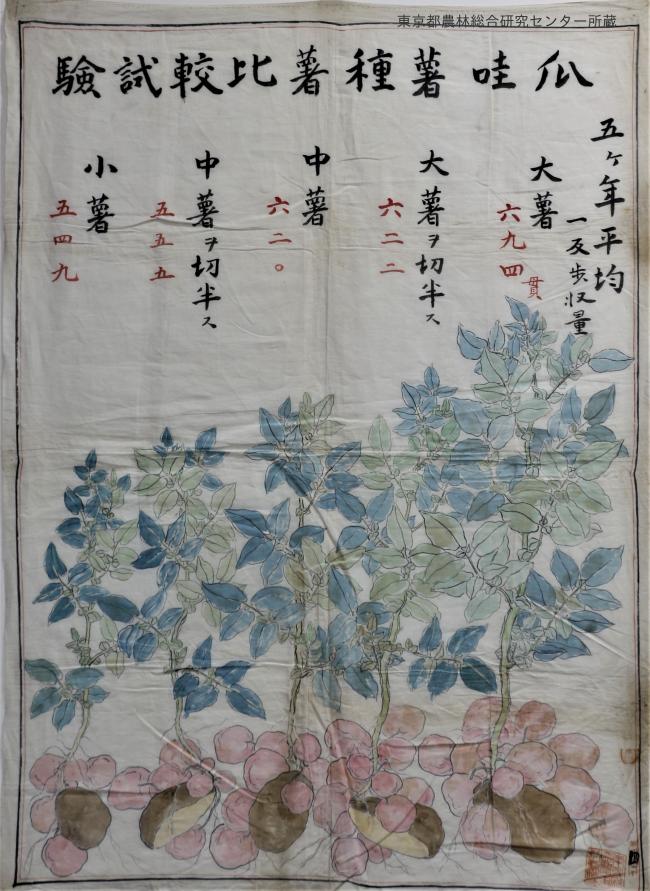 東京都農林総合研究センター所蔵
瓜哇薯種薯比較試驗
五ヶ年平均
一反歩収量
大薯
六九四貫
大薯ヲ切半ス
六二二
中薯
六二〇
中薯ヲ切半ス
五五五
小薯
五四九